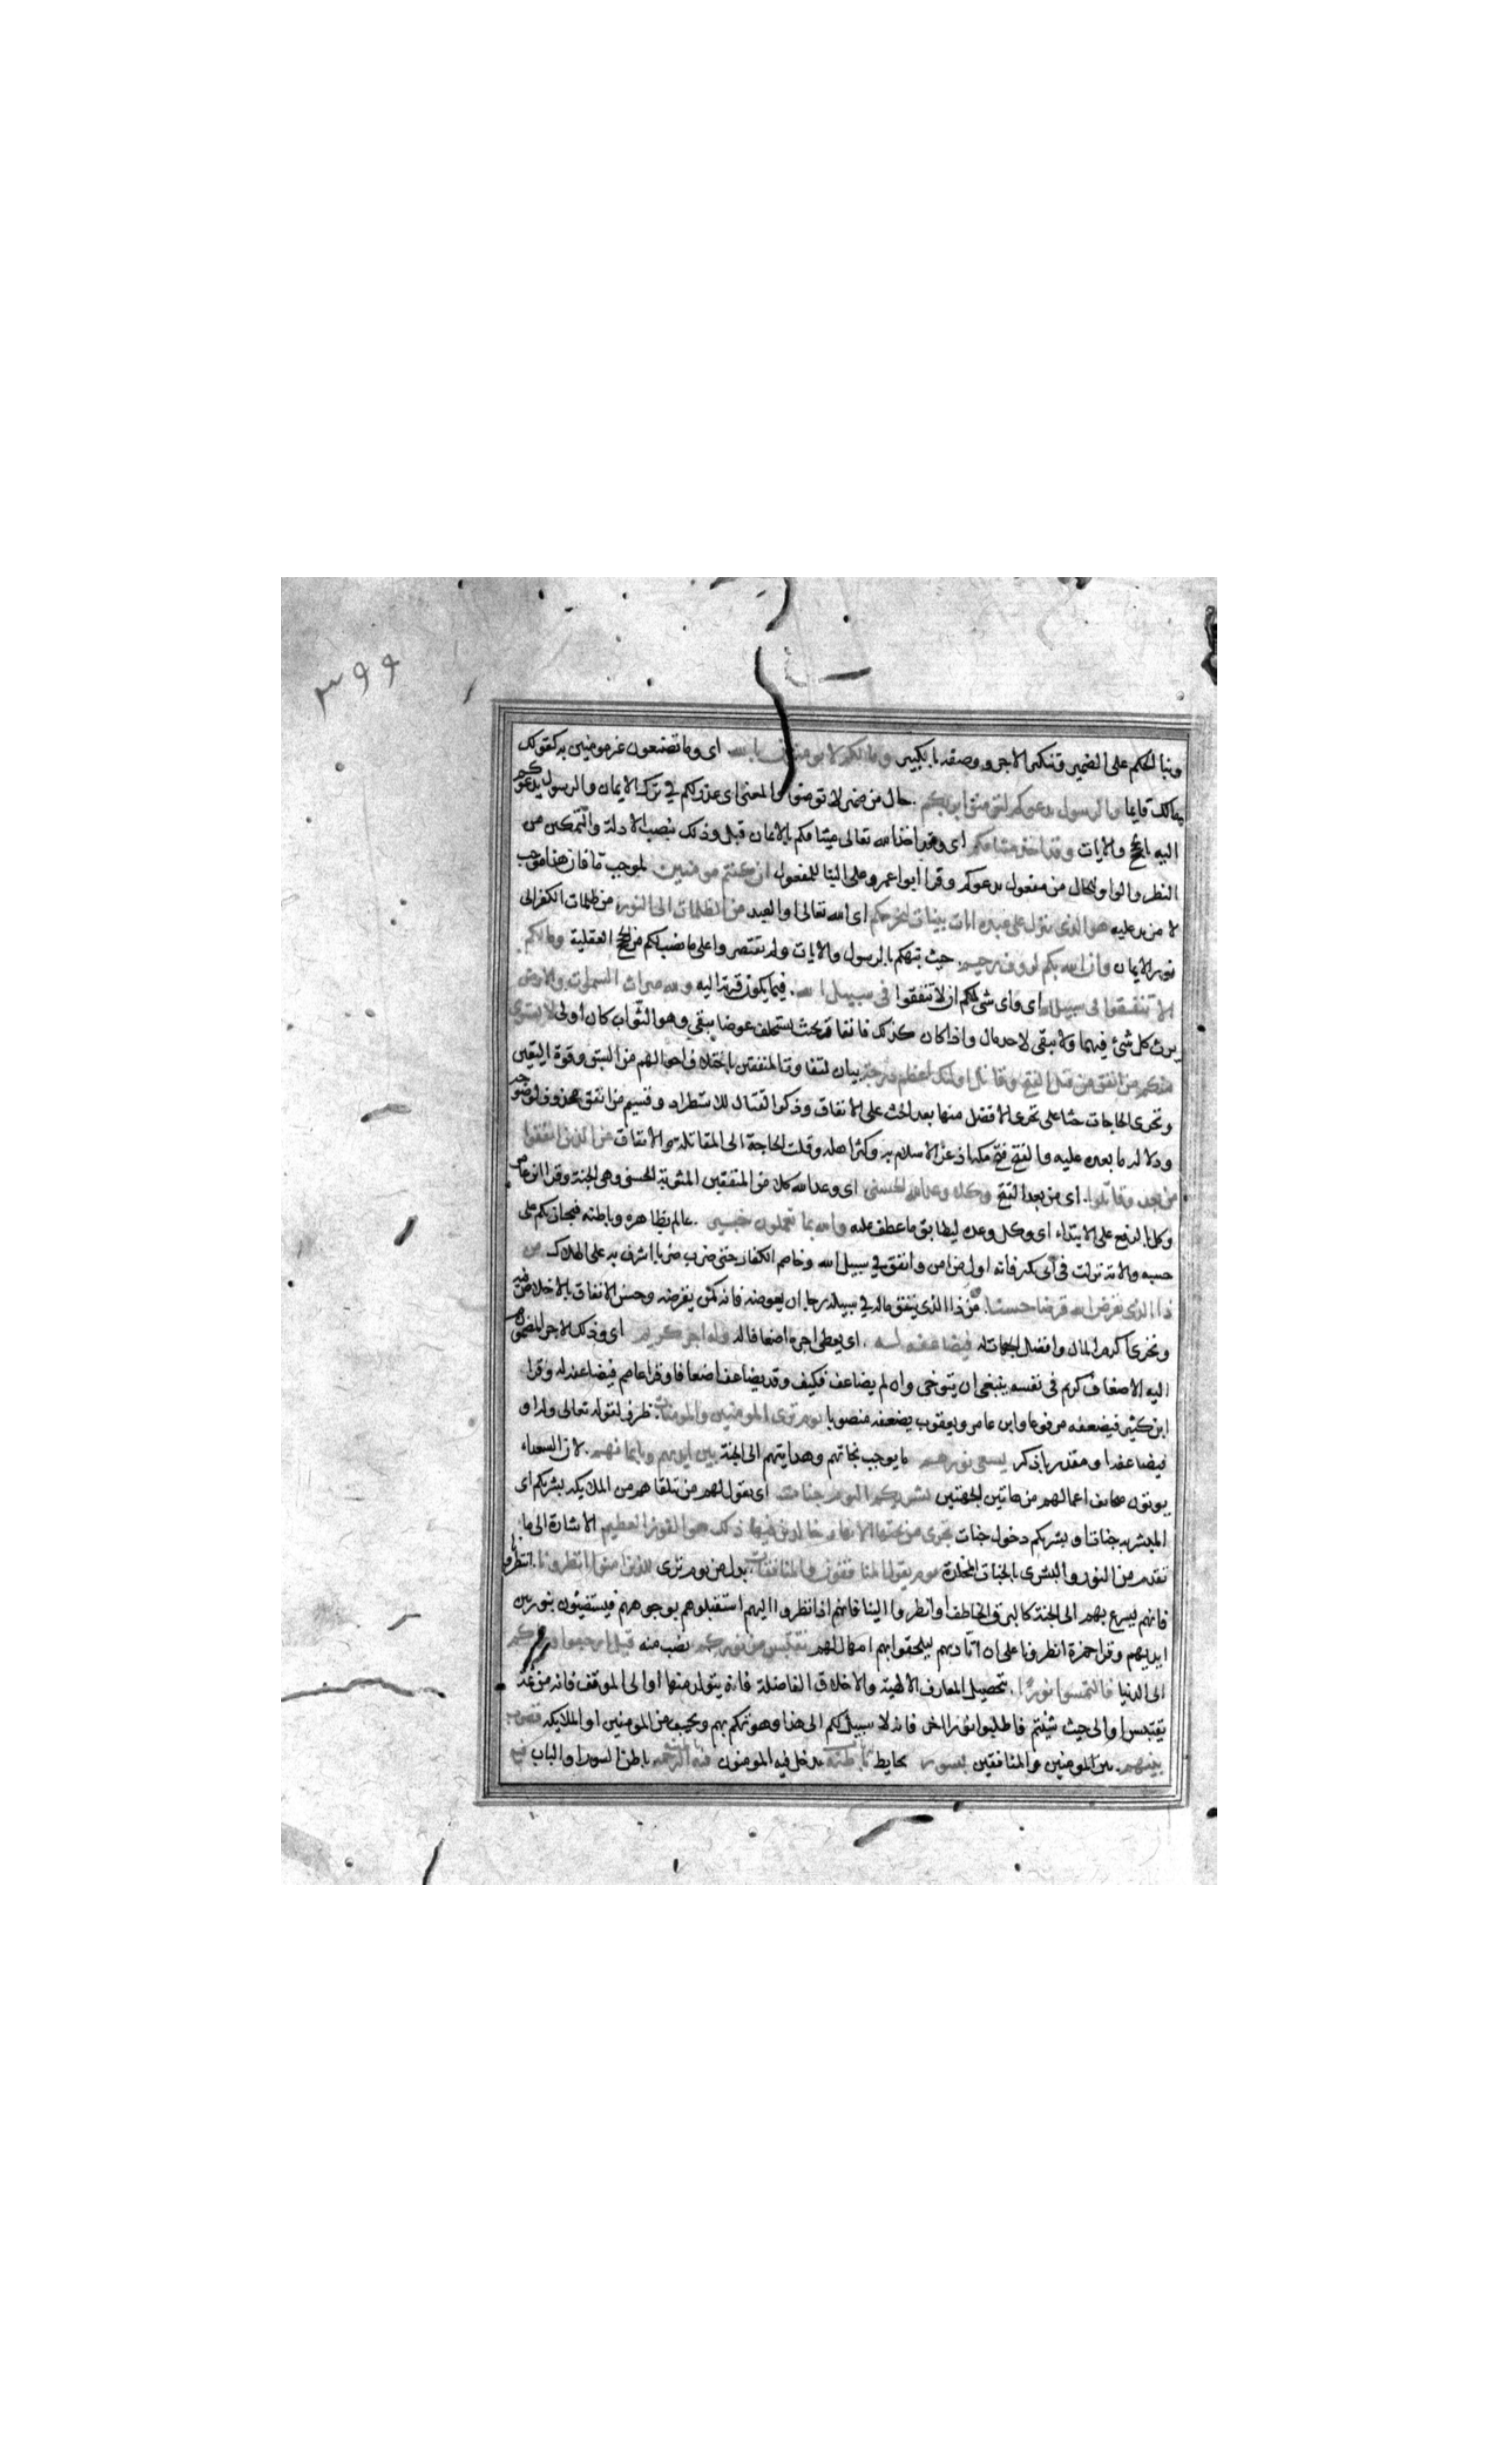 ٣٩٩
وبنا الحكم على الضمير وتنكير الاجر ووصفه بالكبير وما لكم لا تومنون بالله اى وما تصنعون غير مومنين به كقولك
مالك قايما والرسول يدعوكم لتومنوا بربكم حال من ضمير لا تومنوا والمعنى اى عذر لكم فى ترك الايمان والرسول يدعوكم
اليه بالحجج والايات وقد اخذ ميثاقكم اى وقد اخذ الله تعالى ميثاقكم بالايمان قبل وذلك بنصب الادلة والتمكين من
النظر والواو للحال من مفعول يدعوكم وقرا ابو اعمرو على البنا للمفعول ان كنتم مومنين لموجب ما فان هذا موجب
لا مزيد عليه هو الذى ينزل على عبده ايات بينات ليخرجكم اى الله تعالى او العبد من الظلمات الى النور من ظلمات الكفر الى
نور الايمان وان الله بكم لروف رحيم حيث نبهكم بالرسول والايات ولم يقتصروا على ما نصب لكم من الحجج العقلية وما لكم
الا تنفقوا فى سبيل الله اى واى شى لكم ان لا تنفقوا فى سبيل الله فيما يكون قربة اليه ولله ميراث السموات والارض
يرث كل شئ فيهما ولا يبقى لاحد مال واذا كان كذلك فانفاقه بحيث يستخلف عوضا يبقى وهو الثواب كان اولى لا يستوى
منكم من انفق من قبل الفتح وقاتل اولئك اعظم درجة بيان لتفاوت المنفقين باختلاف احوالهم من السبق وقوة اليقين
وتحرى الحاجات حثا على تحرى الافضل منها بعد الحث على الانفاق وذكر القتال للاستطراد وقسيم من انفق محذوف لوضوحه
ودلالة ما بعده عليه والفتح فتح مكة اذ عز الاسلام به وكثر اهله وقلت الحاجة الى المقاتلة والانفاق من الذين انفقوا
من بعد وقاتلوا اى من بعد الفتح وكلا وعد الله الحسنى اى وعد الله كلا من المنفقين المثوبة الحسنى وهى الجنة وقرا ابن عامر
وكل بالرفع على الابتداء اى وكل وعده ليطابق ما عطف عليه والله بما تعملون خبير عالم بظاهره وباطنه فيجازيكم على
حسبه والاية نزلت فى ابى بكر فانه اول من امن وانفق فى سبيل الله وخاصم الكفار حتى ضرب ضربا اشرف به على الهلاك من
ذا الذى يقرض الله قرضا حسنا من ذا الذى ينفق ماله فى سبيله رجا ان يعوضه فانه كمن يقرضه وحسن الانفاق بالاخلاص فيه
وتحرى اكرم المال وافضل الجهات له فيضاعفه له اى يعطى اجره اضعافا له وله اجر كريم اى وذلك الاجر المضموم
اليه الاضعاف كريم فى نفسه ينبغى ان يتوخى وان لم يضاعف فكيف وقد يضاعف اضعافا وقرا عاصم فيضاعفه له وقرا
ابن كثير فيضعفه مرفوعا وابن عامر ويعقوب يضعفه منصوبا يوم ترى المومنين والمومنات ظرف لقوله تعالى وله او
فيضاعفه او مقدر باذكر يسعى نورهم ما يوجب نجاتهم وهدايتهم الى الجنة بين ايديهم وبايمانهم لان السعداء
يوتون صحايف اعمالهم من هاتين الجهتين بشريكم اليوم جنات اى يقول لهم من تلقاهم من الملايكة بشريكم اى
المبشر به جنات او بشريكم دخول جنات تجرى من تحتها الانهار خالدين فيها ذلك هو الفوز العظيم الاشارة الى ما
تقدم من النور والبشرى بالجنات المخلدة يوم يقول المنافقون والمنافقات بدل من يوم ترى للذين امنوا انظرونا انتظرونا
فانهم يسرع بهم الى الجنة كالبرق الخاطف او انظروا الينا فانهم اذا نظروا اليهم استقبلوهم بوجوههم فيستضيئون بنور بين
ايديهم وقرا حمزة انظرونا على ان اتادهم ليلحقوا بهم امهال لهم نقتبس من نوركم نصب منه قيل ارجعوا وراكم
الى الدنيا فالتمسوا نورا بتحصيل المعارف الالهية والاخلاق الفاضلة فانه يتولد منها او الى الموقف فانه من ثمة
يقتبس او الى حيث شيتم فاطلبوا نورا اخر فانه لا سبيل لكم الى هذا وهو تهكم بهم وتخييب من المومنين او الملايكة فضرب
بينهم بين المومنين والمنافقين بسور بحايط باطنه يدخل فيه المومنون فيه الرحمة باطن السور او الباب فيه